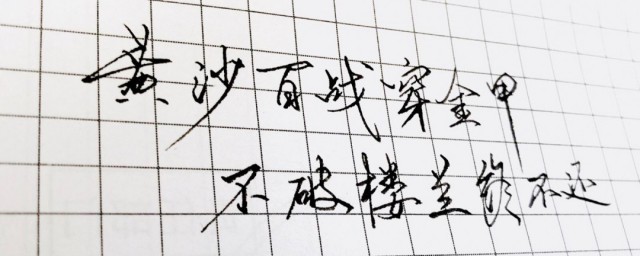 黄沙百战穿金甲
不破楼兰不还